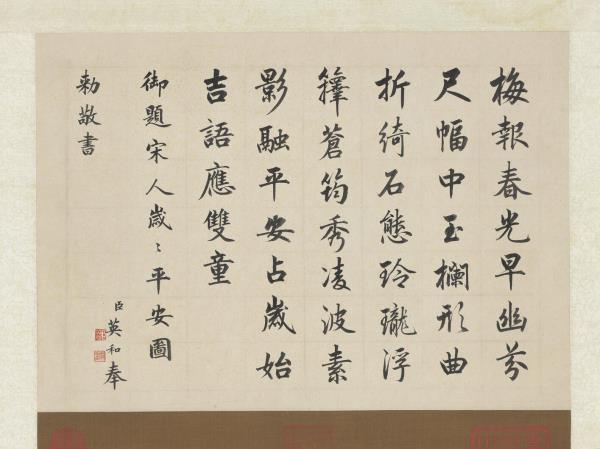 梅報春光早幽芬
尺幅中玉欄形曲
折綺石態玲瓏浮
籜蒼筠秀凌波素
影融平安占歲始
吉語應雙童
御題宋人歲〻平安圖
臣英和奉
勅敬書